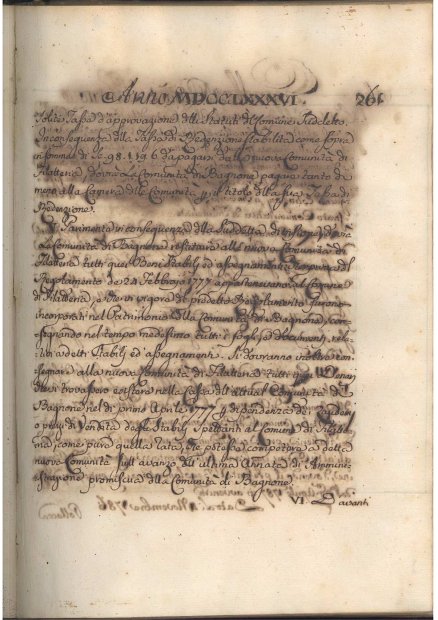 Anno MDCCLXXXVI. 261
solita Tassa d'approvazione dell Statuti del Comune sudetto.
In conseguenza della Tassa di Redenzione stabilita come sopra
in somma di Sc. 98.1.19.6 da pagarsi dalla nuova Comunità di
Filattiera, dovrà la Comunità di Bagnone pagare tanto di
meno alla Camera delle Comunità p il titolo della sua Tassa di
Redenzione.
V. Parimente in conseguenza della suddetta divisione dovrà
la Comunità di Bagnone restituire alla nuova Comunità di
Filattiera tutti quei Beni Stabili, ed assegnamenti, che prima del
Regolamento de 24 Febbrajo 1777 appartenevano al Comune
di Filattiera, e che in vigore del predetto Regolamento furono
incorporati nel Patrimonio della Comunità di Bagnone, con-
segnando nel tempo medesimo tutti i fogli, e documenti, rela-
tivi a detti Stabili, ed assegnamenti. Si dovranno inoltre con-
segnare alla nuova Comunità di Filattiera tutti quei Denari
che si trovassero esistere nella Cassa dell'attual Comunità di
Bagnone nel dì primo Aprile 1777 p dipendenza di
o prezzi di vendita degli Stabili spettanti al Comune di Filattie-
ra, come pure quella rata, che potesse competere a detta
nuova Comunità sull'avanzo dell'ultima Annata di Ammini-
strazione promiscua della Comunità di Bagnone.
VI. Davanti